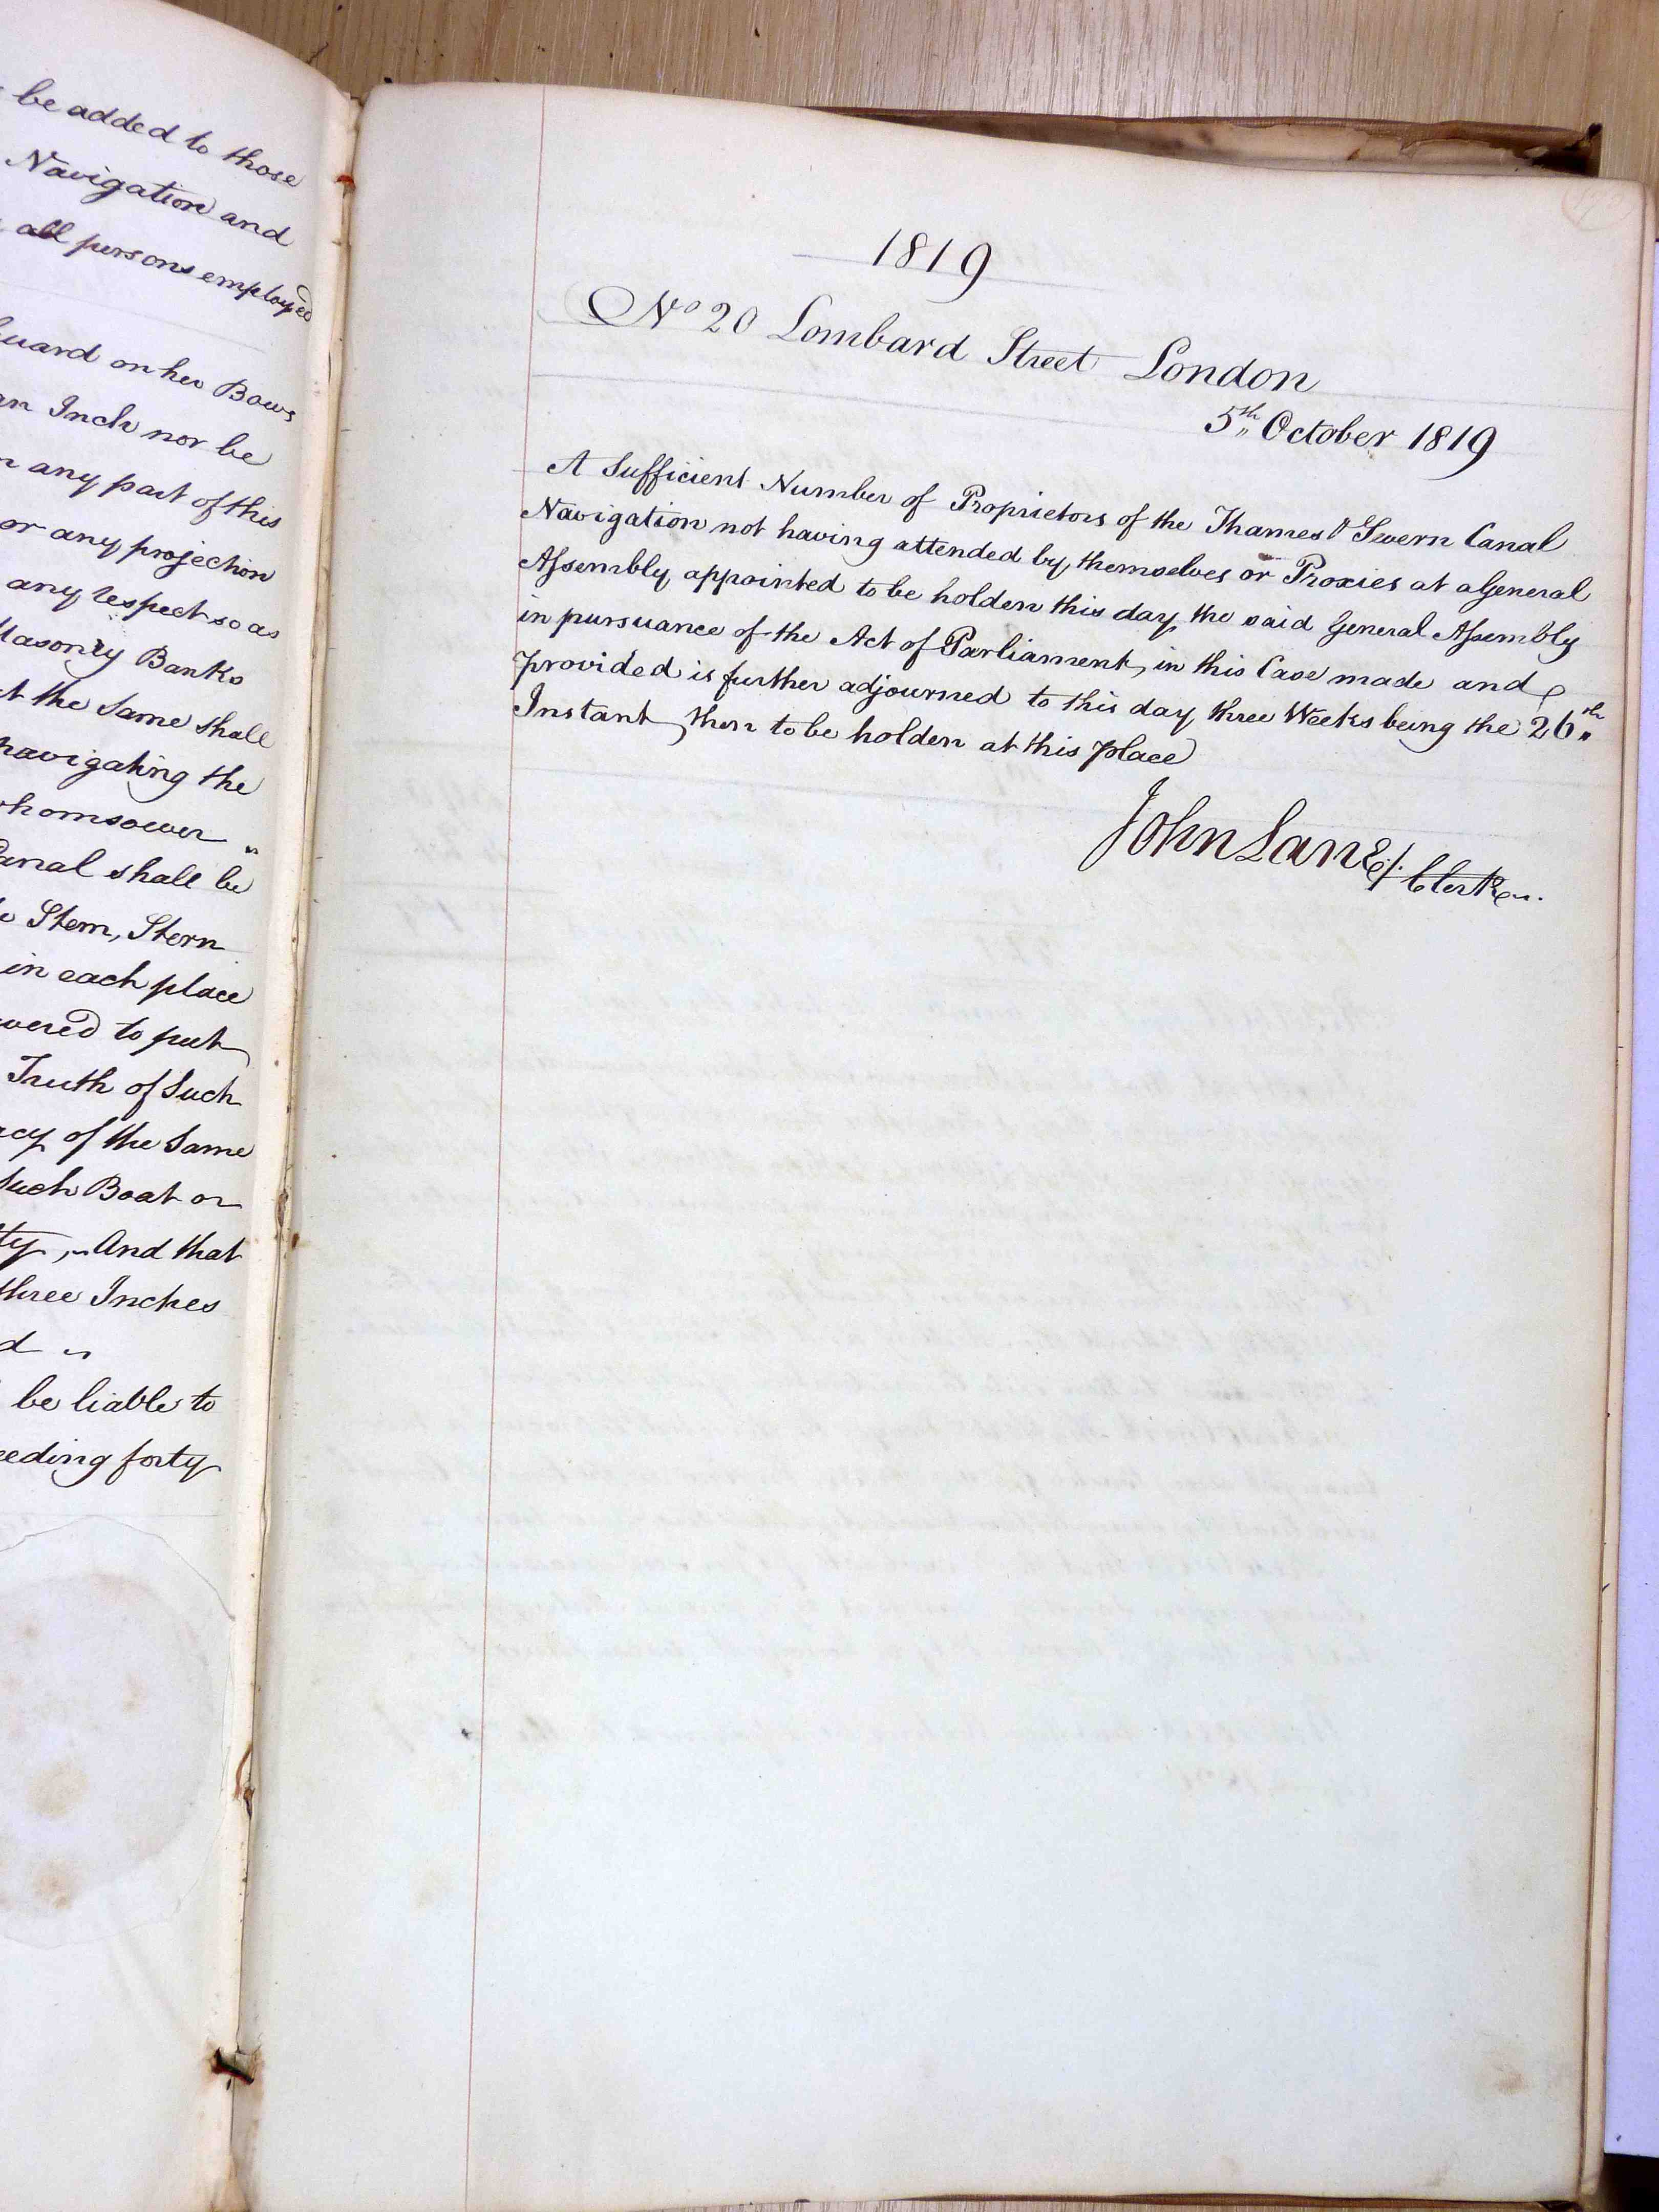 be added to those
Navigation and
all persons employed
guard on her Bows
an Inch nor be
any part of this
or any projection
any respect so as
Masonry Banks
the Same shall
navigating the
whomsoever
Canal shall be
Stem, Stern
in each place
to put
Truth of Such
of the Same
Such Boat or
And that
three Inches
be liable to
forty
1819
No 20 Lombard Street London
5th October 1819
A Sufficient Number of Proprietors of the Thames & Severn Canal
Navigation not having attended by themselves or Proxies at a General
Assembly appointed to be holden this day the said General Assembly
in pursuance of the Act of Parliament, in this Case made and
provided is further adjourned to this day three Weeks being the 26th
Instant then to be holden at this place
John Lane Clerk